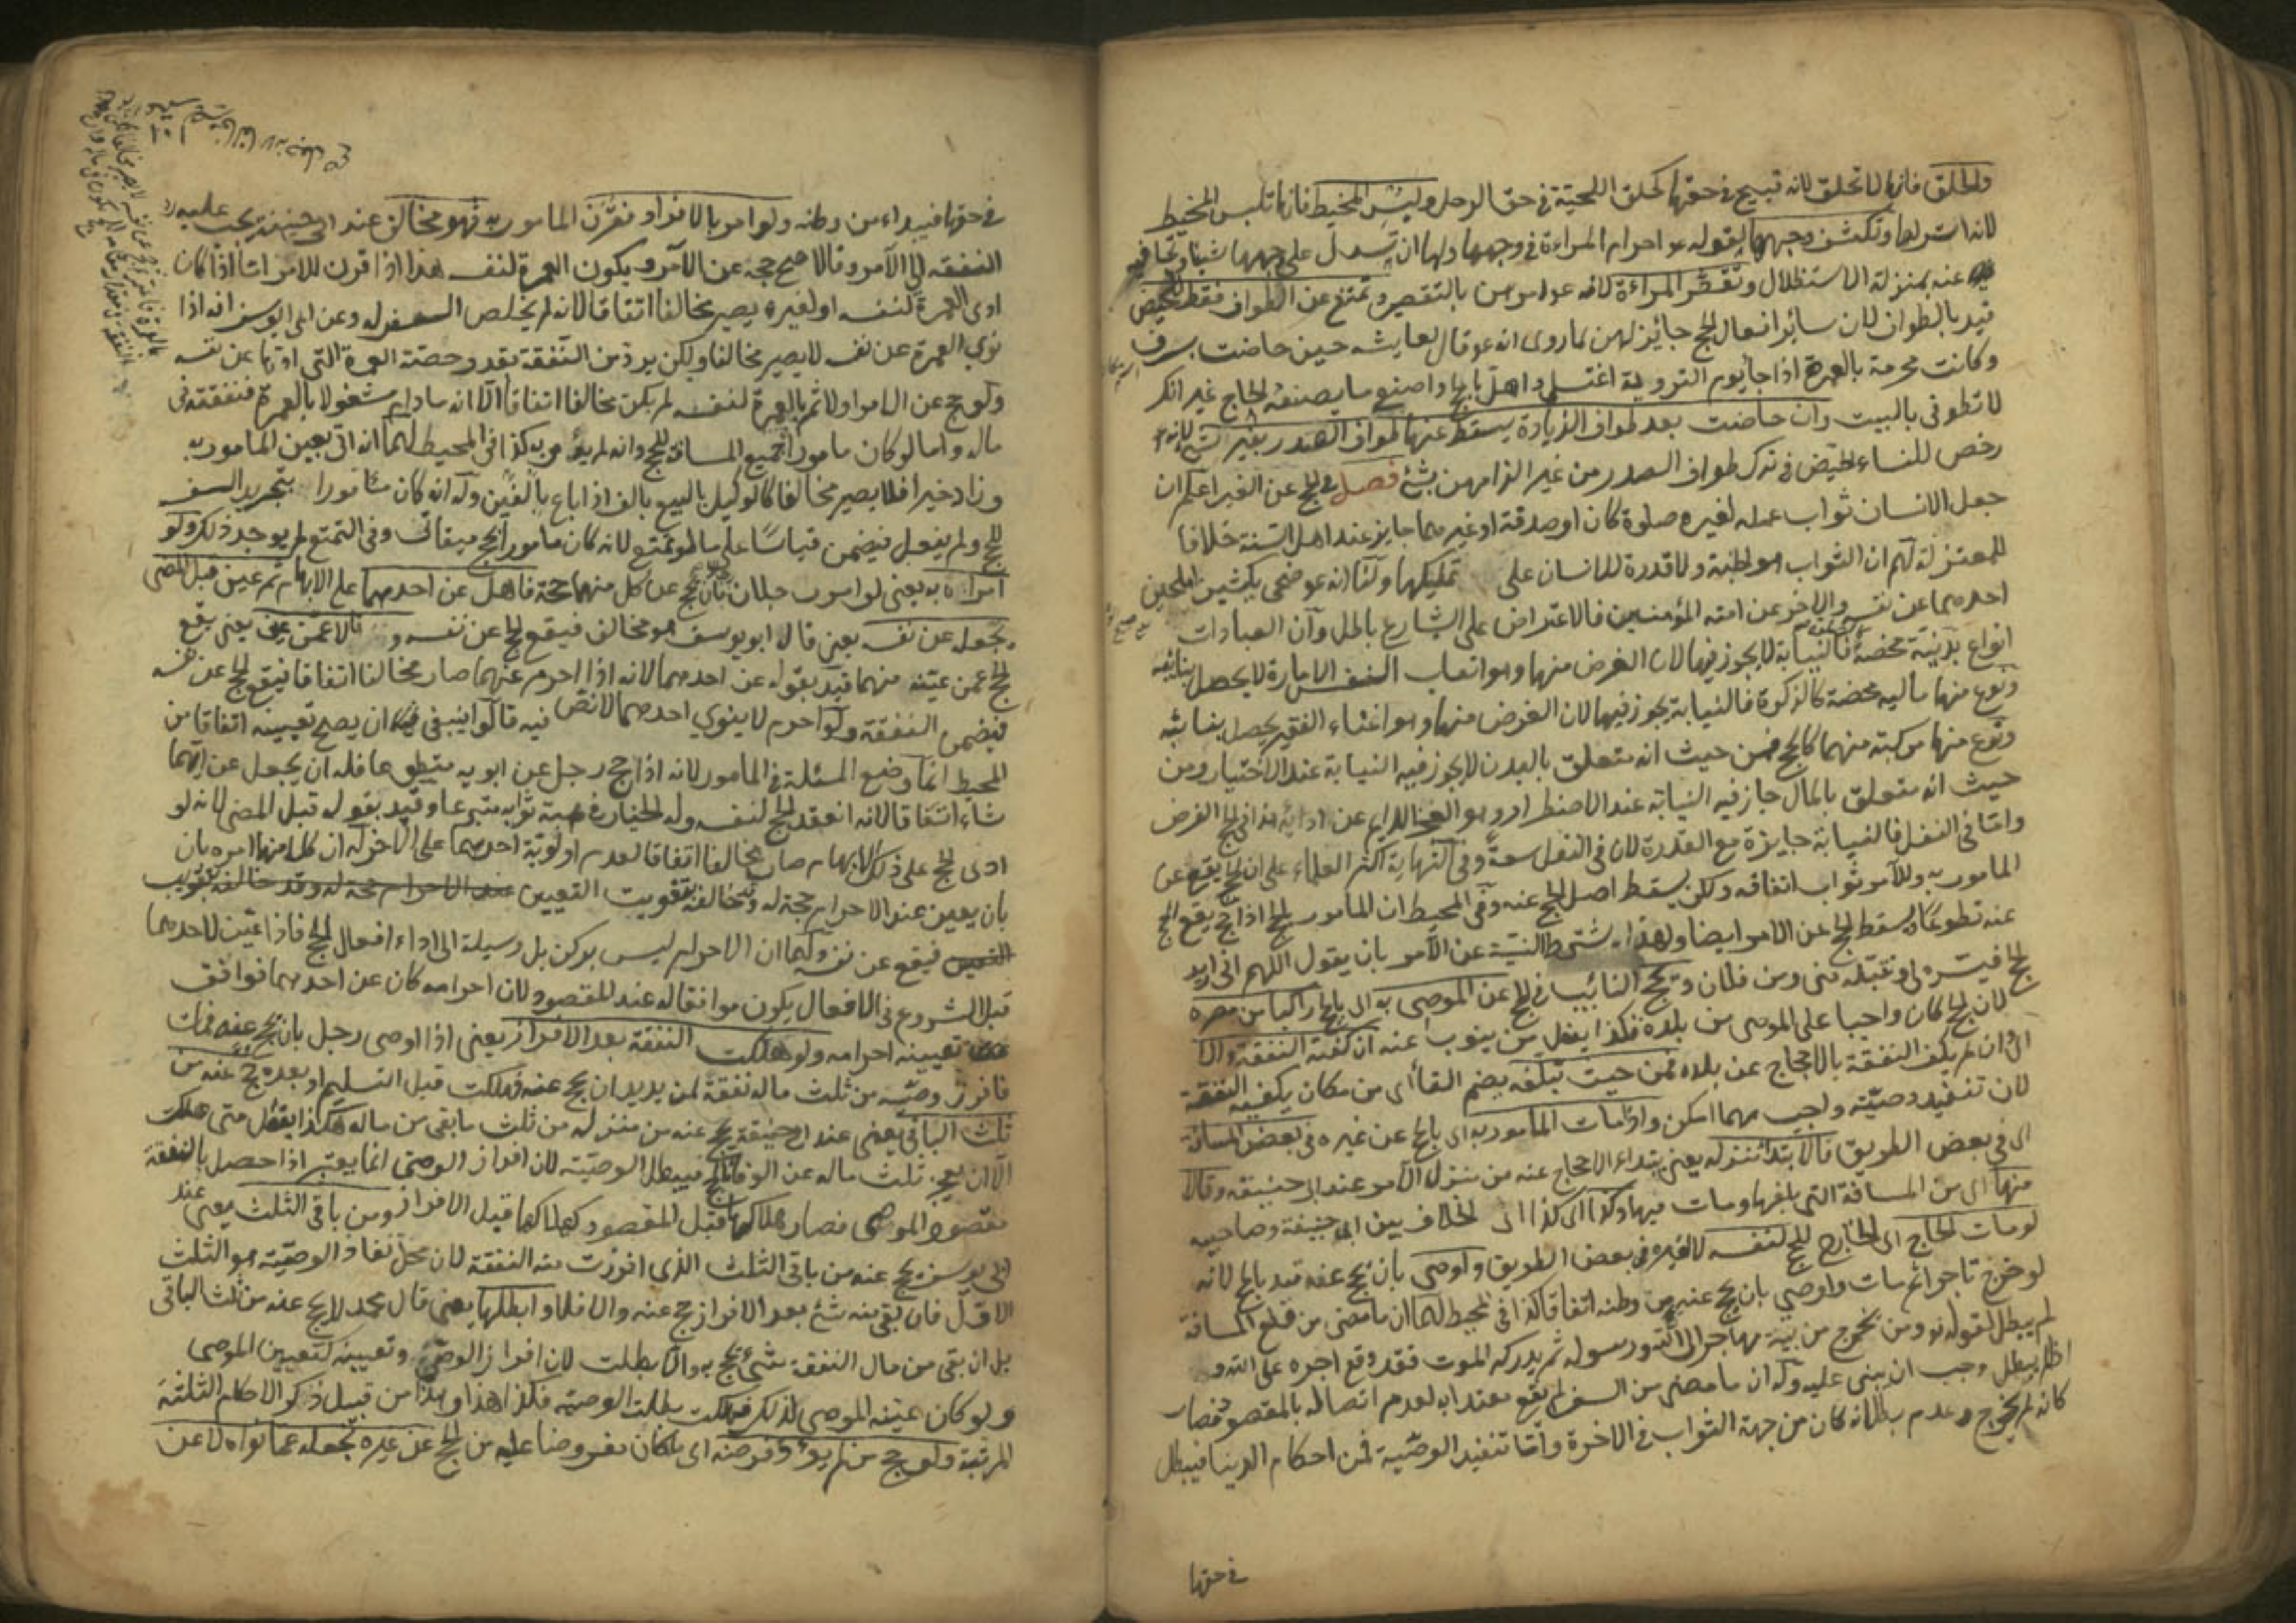 والحلق فانها لا تحلق لانه قبيح في حقها كحلق اللحية في حق الرجل ولبس المخيط فانها تلبس المخيط
لانه استر لها وتكشف وجهها لقوله عم احرام المراءة في وجهها ولها ان تسدل على وجهها شيئا وتجافيه
عنه بمنزلة الاستظلال وتقصر المراءة لانه عم امرهن بالتقصير وتمتنع عن الطواف فقط للحيض
قيد بالطواف لان سائر افعال الحج جايز لهن لما روى انه عم قال لعايشه حين حاضت بسرف
وكانت محرمة بالعمرة اذا جا يوم التروية اغتسلى واهلى بالحج واصنعى ما يصنعه الحاج غير انك
لا تطوفى بالبيت وان حاضت بعد طواف الزيارة يسقط عنها طواف الصدر بغير شئ لانه عم
رخص للنساء الحيض في ترك طواف الصدر من غير الزامهن بشئ فصل في الحج عن الغير اعلم ان
جعل الانسان ثواب عمله لغيره صلوة كان او صدقة او غيرهما جايز عند اهل السنة خلافا
للمعتزلة لهم ان الثواب هو الجنة ولا قدرة للانسان على تمليكها ولنا انه عم ضحى بكبشين املحين
احدهما عن نفسه والاخر عن امته المؤمنين فالاعتراض على الشارع باطل وان العبادات
انواع بدنية محضة فالنيابة لا يجوز فيها لان الغرض منها وهو اتعاب النفس الامارة لا يحصل بنائبه
ونوع منها ماليه محضة كالزكوة فالنيابة يجوز فيها لان الغرض منها وهو اغناء الفقير يحصل بنائبه
ونوع منها مركبة منهما كالحج فمن حيث انه متعلق بالبدن لا يجوز فيه النيابة عند الاختيار ومن
حيث انه متعلق بالمال جاز فيه النيابة عند الاضطرار وهو العجز الدايم عن ادائه هذا في الحج الفرض
واما في النفل فالنيابة جايزة مع القدرة لان في النفل سعة وفي النهاية اكثر العلماء على ان الحج يقع عن
المامور به وللآمر ثواب انفاقه ولكن يسقط اصل الحج عنه وفي المحيط ان المامور بالحج اذا حج يقع الحج
عنه تطوعا ويسقط الحج عن الامر ايضا ولهذا يشترط النية عن الآمر بان يقول اللهم انى اريد
الحج فيسره لى وتقبله منى ومن فلان ويحج النائب في الحج عن الموصى به الى بالحج راكبا من مصره
لان الحج كان واجبا على الموصى من بلده فكذا يفعل من ينوب عنه ان كفته النفقة والا
اى وان لم يكف النفقة بالاحجاج عن بلده فمن حيث تبلغه بضم التا أى من مكان يكفيه النفقة
لان تنفيذ وصيته واجب مهما امكن واذا مات المامور به اى بالحج عن غيره في بعض المسافة
اى في بعض الطريق فالابتداء منزله يعنى يبتداء الاحجاج عنه من منزل الآمر عند ابى حنيفه وقالا
منها اى من المسافة التى بلغها ومات فيها وكذا اى كذا الخلاف بين ابى حنيفة وصاحبيه
لو مات الحاج اى الخارج للحج لنفسه لا لغيره في بعض الطريق واوصى بان يحج عنه قيد بالحج لانه
لو خرج تاجرا ثم مات واوصى بان يحج عنه من وطنه اتفاقا كذا في المحيط لهما ان ما مضى من قطع المسافة
لم يبطل لقوله تع ومن يخرج من بيته مهاجرا الى الله ورسوله ثم يدركه الموت فقد وقع اجره على الله و
اذا لم يبطل وجب ان يبنى عليه وله ان ما مضى من السفر لم يقع معتدا به لعدم اتصاله بالمقصود فصار
كانه لم يخرج وعدم بطلانه كان من جهة الثواب في الاخرة واما تنفيذ الوصية فمن احكام الدنيا فيبطل
في حقها
في حقها فيبداء من وطنه ولو امر بالافراد فقرن المامور به فهو مخالف عند ابى حنيفة يجب عليه رد
النفقه الى الآمر وقالا صح حجه عن الآمر ويكون العمرة لنفسه هذا اذا قرن للامر اما اذا كان
ادى العمرة لنفسه او لغيره يصير مخالفا اتفاقا لانه لم يخلص السفر له وعن ابى يوسف انه اذا
نوى العمرة عن نفسه لا يصير مخالفا ولكن يرد من النفقة بقدر حصة العمرة التى اداها عن نفسه
ولو حج عن الامر اولا ثم بالعمرة لنفسه لم يكن مخالفا اتفاقا الا انه ما دام مشغولا بالعمرة فنفقته فى
ماله واما لو كان مامورا بجميع المسافة للحج وانه لم يؤمر به كذا في المحيط لهما انه اتى بعين المامور به
وزاد خيرا فلا يصير مخالفا كالوكيل بالبيع بالف اذا باع بالفين وله انه كان مأمورا بتجريد السفر
للحج ولم يفعل فيضمن قياسا على ما لو تمتع لانه كان مامورا بحج ميقاتى وفى التمتع لم يوجد ذلك ولو
امراه به يعنى لو امره رجلان بان يحج عن كل منهما حجة فاهل عن احدهما على الابهام ثم عين قبل المضى
يجعله عن نفسه يعنى قال ابو يوسف هو مخالف فيقع الحج عن نفسه وقالا عمن عين يعنى يقع
الحج عمن عينه منهما قيد بقوله عن احدهما لانه اذا احرم عنهما صار مخالفا اتفاقا فيقع الحج عن نفسه
فيضمن النفقة ولو احرم لا ينوي احدهما لا نص فيه قالوا ينبغى ان يصح تعيينه اتفاقا من
المحيط انما وضع المسئلة في المامور لانه اذا حج رجل عن ابويه متطوعا فله ان يجعل عن ايهما
شاء اتفاقا لانه انعقد الحج لنفسه وله الخيار في هبة ثوابه متبرعا وقيد بقوله قبل المضى لانه لو
ادى الحج على ذلك الابهام صار مخالفا اتفاقا لعدم اولوية احدهما على الاخر له ان كلا منهما امره بان
بان يعين عند الاحرام حجة له وخالفه بتفويت التعيين
فيقع عن نفسه ولهما ان الاحرام ليس بركن بل وسيلة الى اداء افعال الحج فاذا عين لاحدهما
قبل الشروع في الافعال يكون موافقا له عند المقصود لان احرامه كان عن احدهما فوافق
تعيينه احرامه ولو هلكت النفقة بعد الافراز يعنى اذا اوصى رجل بان يحج عنه فمات
فافرز وصيه من ثلث ماله نفقة لمن يريد ان يحج عنه فهلكت قبل التسليم او بعده يحج عنه من
ثلث الباقى يعنى عند ابى حنيفة يحج عنه من منزله من ثلث ما بقى من ماله هكذا يفعل متى هلكت
الا ان يعجز ثلث ماله عن الوفا بالحج فيبطل الوصية لان افراز الوصى انما يعتبر اذا حصل بالنفقة
مقصود الموصى فصار هلاكها قبل المقصود كهلاكها قبل الافراز ومن باقى الثلث يعنى عند
ابى يوسف يحج عنه من باقى الثلث الذى افرزت منه النفقة لان محل نفاذ الوصية هو الثلث
الاول فان بقى منه شئ بعد الافراز حج عنه والا فلا وابطلها يعنى قال محمد لا يحج عنه من ثلث الباقى
بل ان بقى من مال النفقة شئ يحج به والا بطلت لان افراز الوصى وتعيينه كتعيين الموصى
ولو كان عينه الموصى لذلك فهلكت بطلت الوصيه فكذا هذا وهذا من قبيل ذكر الاحكام الثلثة
المرتبة ولو حج من لم يؤد فرضه اى ما كان مفروضا عليه من الحج عن غيره نجعله عما نواه لا عن